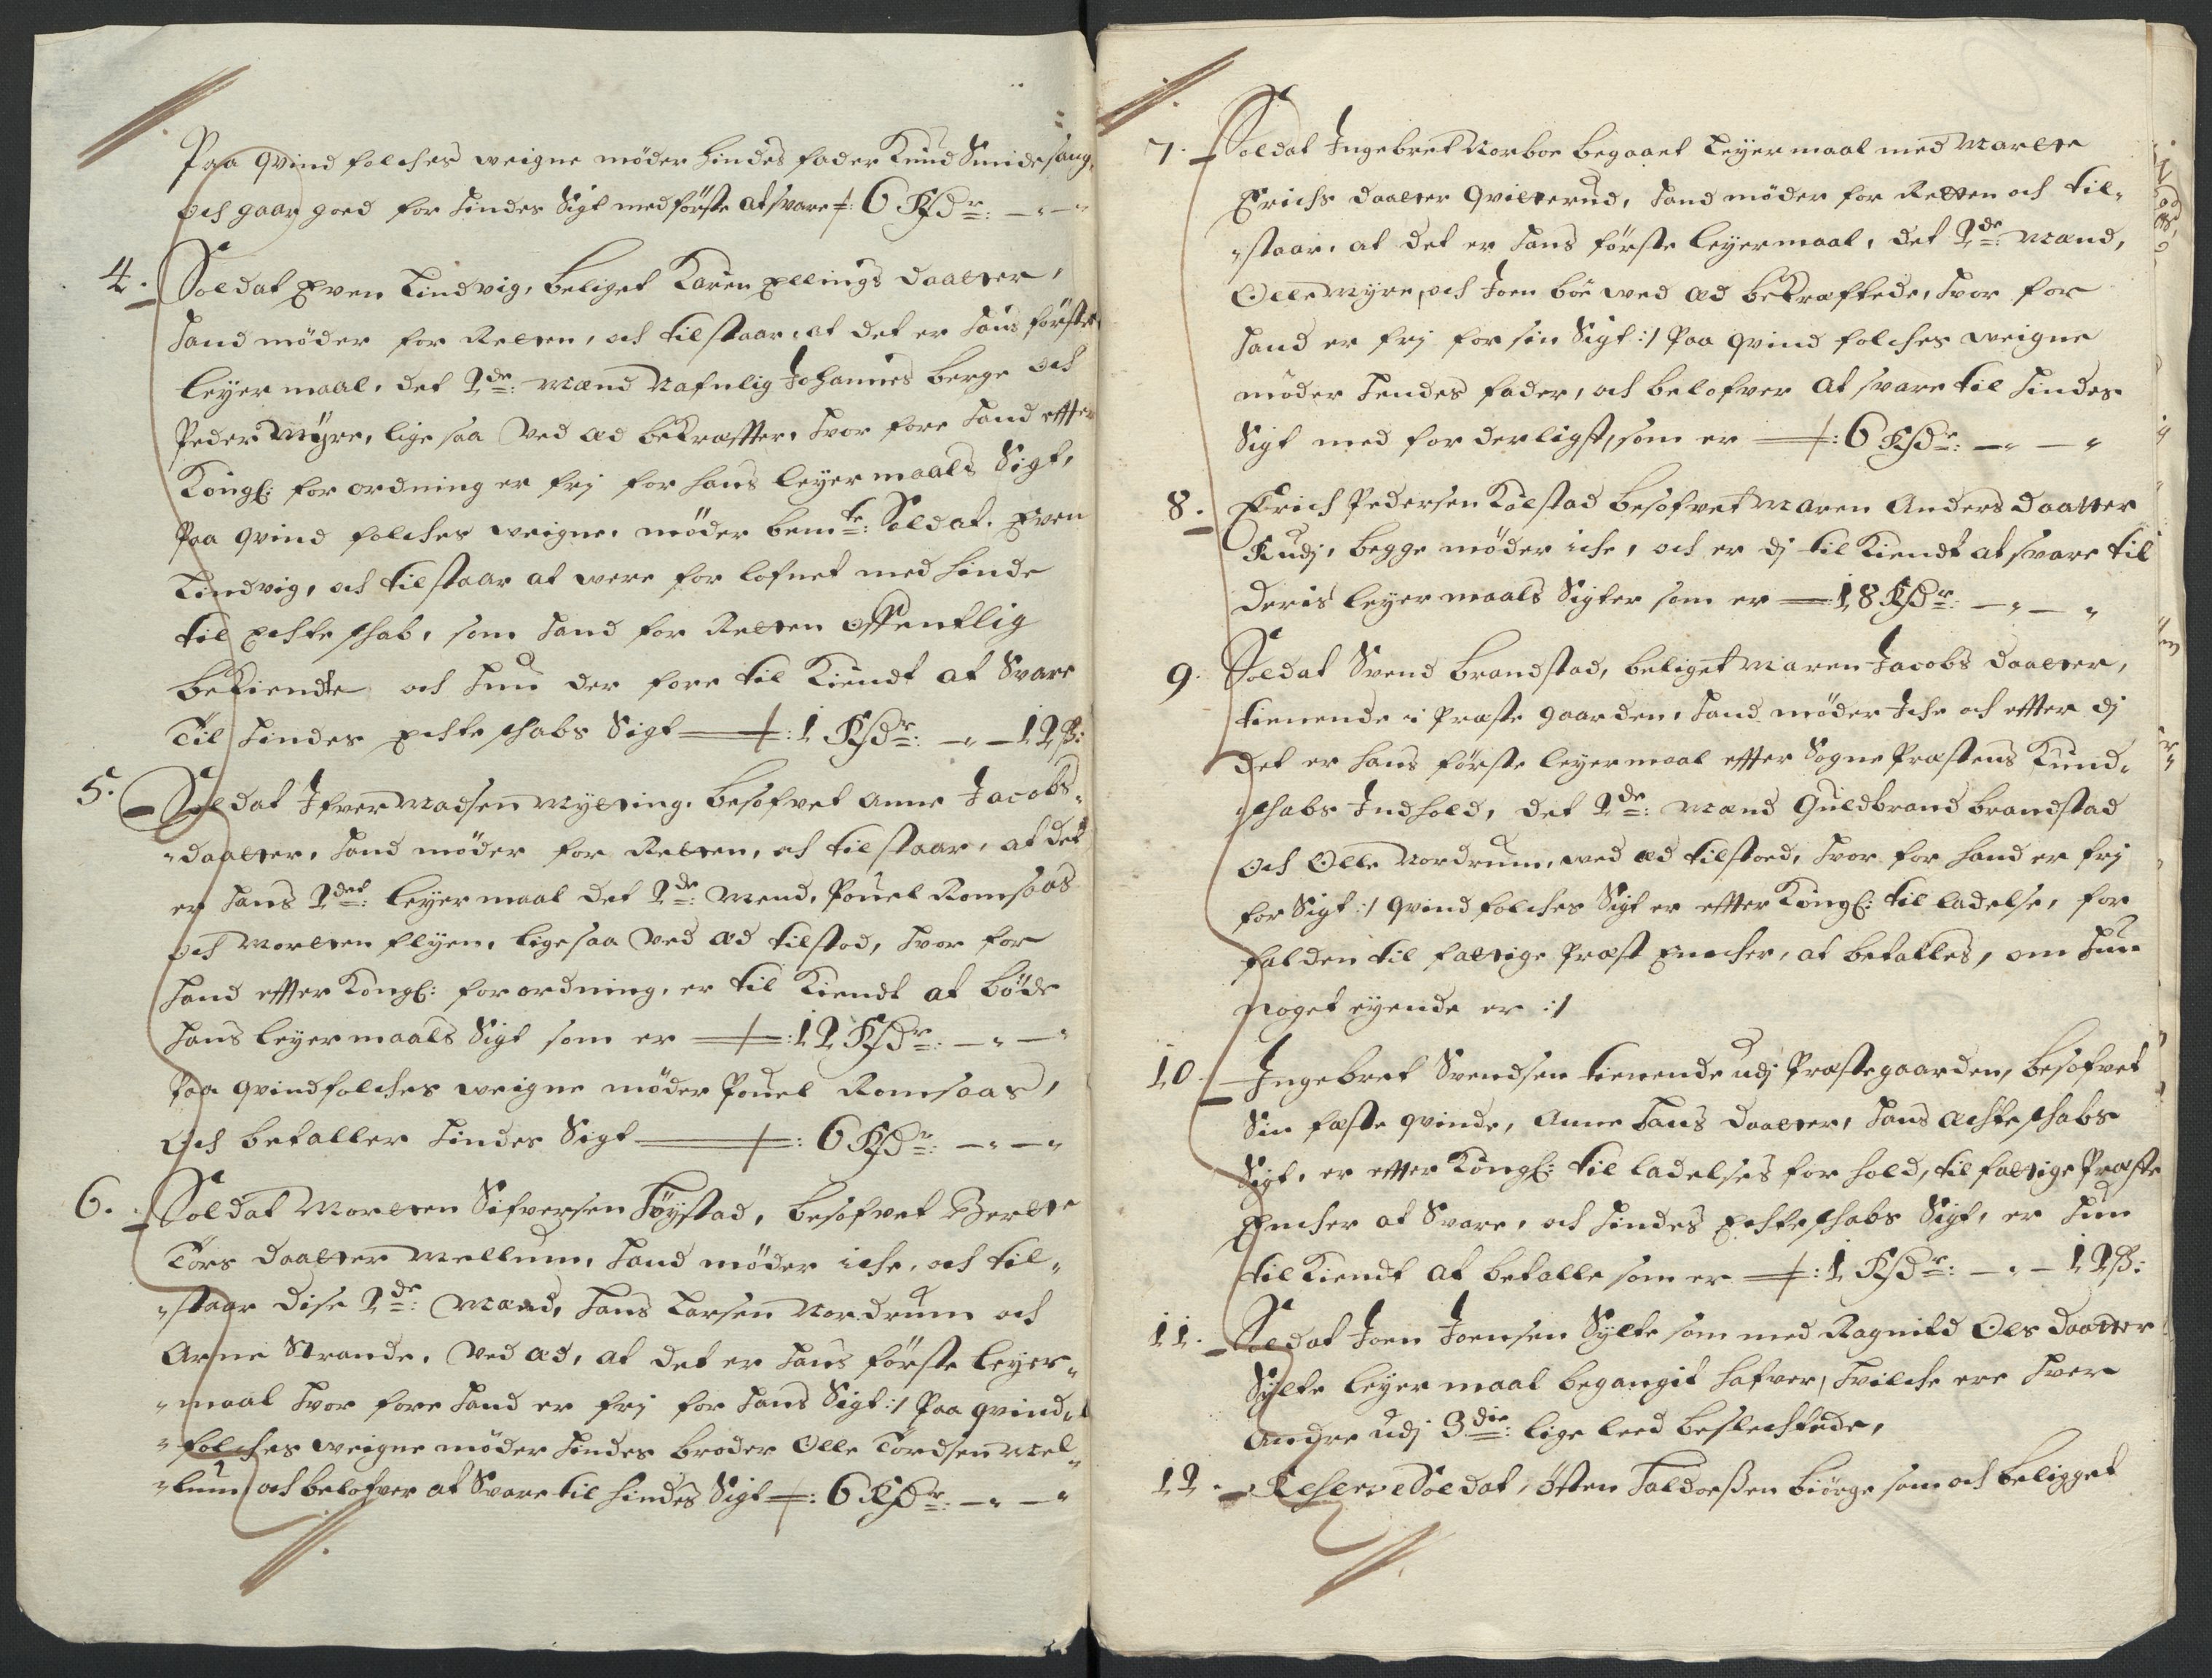 Paa qvind folches weigne möder hindes fader Knud Smidesang,
och gaar goed for hindes Sigt med förste at svare 6 Rdr: — " — "
4. Soldat Even Lindvig, beliget Karen Ellings daatter,
hand möder for Retten, och tilstaar, at det er hans förste
leyermaal, det 2de: Mænd Nafnlig Johannes berge och
Peder Myre, lige saa Ved æd bekræffter, hvor fore hand effter
Kongl: forordning er frj for hans leyermaals Sigt,
Paa qvind folches weigne, möder bemte: Soldat, Even
Lindvig, och tilstaar at were for lofvet med hinde
til Echteschab, som hand for Retten offentlig
bekiendte, och hun der fore til Kiendt at Svare
Til hindes Echteschabs Sigt — 1 Rdr: — " — 12 ß:
5. Soldat Ifver Madsen Mytting, besofvet Anne Jacobs„
„daatter, hand möder for Retten, och tilstaar, at det
er hans 2det: leyermaal det 2de: Mend, Pouel Romsaas
och Morten flyen, ligesaa Ved æd tilstod, hvor for
hand effter Kongl: forordning, er til Kiendt at böde
hans leyermaals Sigt som er — 12 Rdr: — " — "
Paa qvindfolches weigne möder Pouel Romsaas,
och betaller hindes Sigt — 6 Rdr: — " — "
6. Soldat Morten Sifversen Höystad, besofvet Berte
Tors daatter Mellum, hand möder iche, och til„
„staar dise 2de: Mænd, Hans Larsen Nordrum och
Arne Strande, Ved æd, at det er hans förste leyer„
„maal hvor fore hand er frj for hans Sigt :/ Paa qvind„
„folches weigne möder hindes broder Olle Tordsen Mel„
„lum och belofver at Svare til hindes Sigt 6 Rdr: — " — "
7. Soldat Ingebret Norboe begaaet Leyermaal med Marte
Erichs daatter qvitterud, hand möder for Retten och til„
„staar, at det er hans förste leyermaal, det 2de: Mænd,
Olle Myre, och Joen böe wed æd bekræftede, hvor for
hand er frj for sin Sigt :/ Paa qvind folches weigne
möder hendes fader, och belofver at svare til hindes
Sigt med forderligst, som er — 6 Rdr: — " — "
8. Erich Pedersen Kolstad besofvet Maren Anders daatter
Rudj, begge möder iche, och er dj til Kiendt at svare til
deris leyermaals Sigter som er — 18 Rdr: — " — "
9. Soldat Svend brandstad, beliget Maren Jacobs daatter,
tienende i Præste gaarden, hand möder Iche och effter dj
det er hans förste leyermaal effter Sogne Præstens Kund„
„schabs Indhold, det 2de: Mænd Guldbrand brandstad
och Olle Nordrum, wed æd tilstoed, hvor for hand er frj
for Sigt :/ qvindfolches Sigt er effter Kongl: til ladelse, for
falden til fattige Præst Encher, at betalles, om hun
noget eyende er :/
10. Ingebret Svendsen tienende udj Præstegaarden, besofvet
Sin fæste qvinde, Anne Hans daatter, hans Echteschabs
Sigt, er effter Kongl: til ladelses forhold, til fattige Præste
Encher at Svare, och hindes Echteschabs Sigt, er hun
til Kiendt at betalle som er — 1 Rdr: — " — 12 ß:
11. Soldat Joen Joensen Sylte som med Ragnild Ols daatter
Sylte leyermaal begangit hafver, hvilche ere hver
Andre udj 3die: lige leed beslechtede,
12. Reserve Soldat, Östen Haldorßen biörge som och beligget